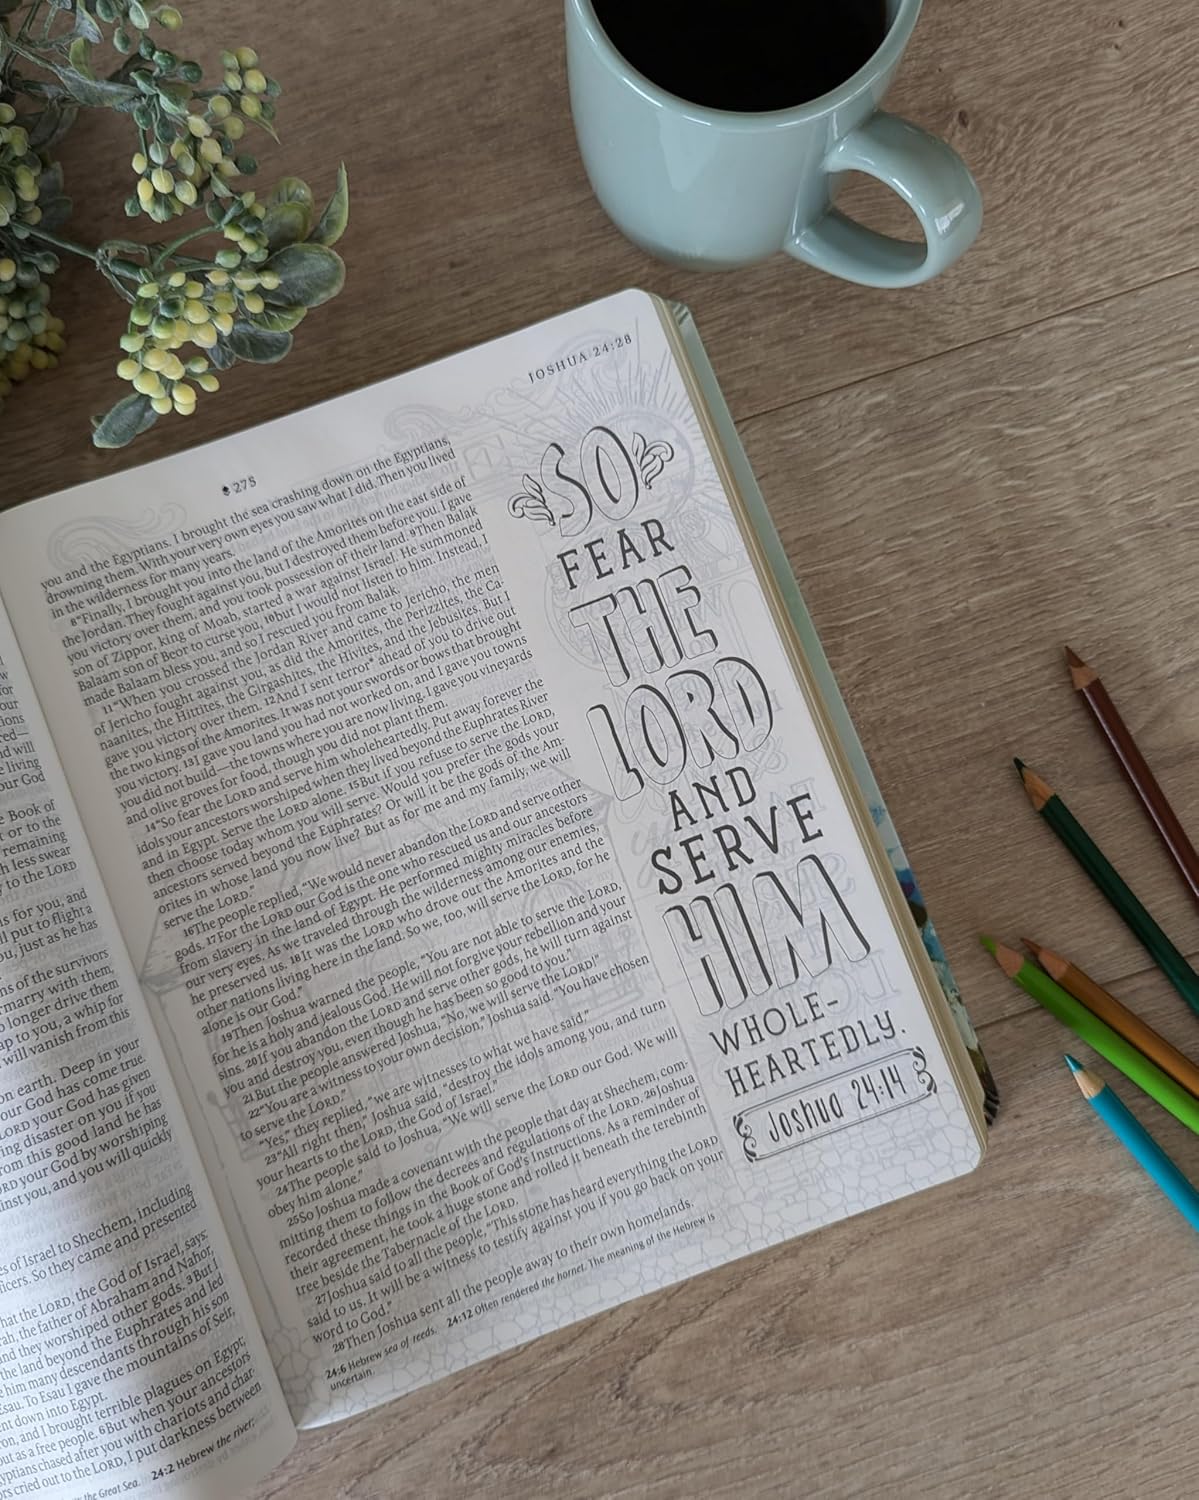 Book of
or to the
remaining
h less swear
y to the LORD
s for you, and
l put to flight a
ou, just as he has
ns of the survivors
marry with them,
o longer drive them
ap to you, a whip for
will vanish from this
on earth. Deep in your
our God has come true.
LORD your God has given
ing disaster on you if you
rom this good land he has
ORD your God by worshiping
inst you, and you will quickly
es of Israel to Shechem, including
ficers. So they came and presented
hat the LORD, the God of Israel, says:
rah, the father of Abraham and Nahor,
nd they worshiped other gods. 3 But I
the land beyond the Euphrates and led
him many descendants through his son
Esau. To Esau I gave the mountains of Seir,
nt down into Egypt.
ron, and I brought terrible plagues on Egypt;
out as a free people. 6 But when your ancestors
yptians chased after you with chariots and char-
ors cried out to the LORD, I put darkness between
the Great Sea. 24:2 Hebrew the river;
275
JOSHUA 24:28
you and the Egyptians. I brought the sea crashing down on the Egyptians,
drowning them. With your very own eyes you saw what I did. Then you lived
in the wilderness for many years.
8 "Finally, I brought you into the land of the Amorites on the east side of
the Jordan. They fought against you, but I destroyed them before you. I gave
you victory over them, and you took possession of their land. 9 Then Balak
son of Zippor, king of Moab, started a war against Israel. He summoned
Balaam son of Beor to curse you, 10 but I would not listen to him. Instead, I
made Balaam bless you, and so I rescued you from Balak.
11 "When you crossed the Jordan River and came to Jericho, the men
of Jericho fought against you, as did the Amorites, the Perizzites, the Ca-
naanites, the Hittites, the Girgashites, the Hivites, and the Jebusites. But I
gave you victory over them. 12 And I sent terror* ahead of you to drive out
the two kings of the Amorites. It was not your swords or bows that brought
you victory. 13 I gave you land you had not worked on, and I gave you towns
you did not build—the towns where you are now living. I gave you vineyards
and olive groves for food, though you did not plant them.
14 "So fear the LORD and serve him wholeheartedly. Put away forever the
idols your ancestors worshiped when they lived beyond the Euphrates River
and in Egypt. Serve the LORD alone. 15 But if you refuse to serve the LORD,
then choose today whom you will serve. Would you prefer the gods your
ancestors served beyond the Euphrates? Or will it be the gods of the Am-
orites in whose land you now live? But as for me and my family, we will
serve the LORD."
16 The people replied, "We would never abandon the LORD and serve other
gods. 17 For the LORD our God is the one who rescued us and our ancestors
from slavery in the land of Egypt. He performed mighty miracles before
our very eyes. As we traveled through the wilderness among our enemies,
he preserved us. 18 It was the LORD who drove out the Amorites and the
other nations living here in the land. So we, too, will serve the LORD, for he
alone is our God."
19 Then Joshua warned the people, "You are not able to serve the LORD,
for he is a holy and jealous God. He will not forgive your rebellion and your
sins. 20 If you abandon the LORD and serve other gods, he will turn against
you and destroy you, even though he has been so good to you."
21 But the people answered Joshua, "No, we will serve the LORD!"
22 "You are a witness to your own decision," Joshua said. "You have chosen
to serve the LORD."
"Yes," they replied, "we are witnesses to what we have said."
23 "All right then," Joshua said, "destroy the idols among you, and turn
your hearts to the LORD, the God of Israel."
24 The people said to Joshua, "We will serve the LORD our God. We will
obey him alone."
25 So Joshua made a covenant with the people that day at Shechem, com-
mitting them to follow the decrees and regulations of the LORD. 26 Joshua
recorded these things in the Book of God's Instructions. As a reminder of
their agreement, he took a huge stone and rolled it beneath the terebinth
tree beside the Tabernacle of the LORD.
27 Joshua said to all the people, "This stone has heard everything the LORD
said to us. It will be a witness to testify against you if you go back on your
word to God."
28 Then Joshua sent all the people away to their own homelands.
24:6 Hebrew sea of reeds. 24:12 Often rendered the hornet. The meaning of the Hebrew is
uncertain.
SO
FEAR
THE
LORD
AND
SERVE
HIM
WHOLE-
HEARTEDLY.
Joshua 24:14